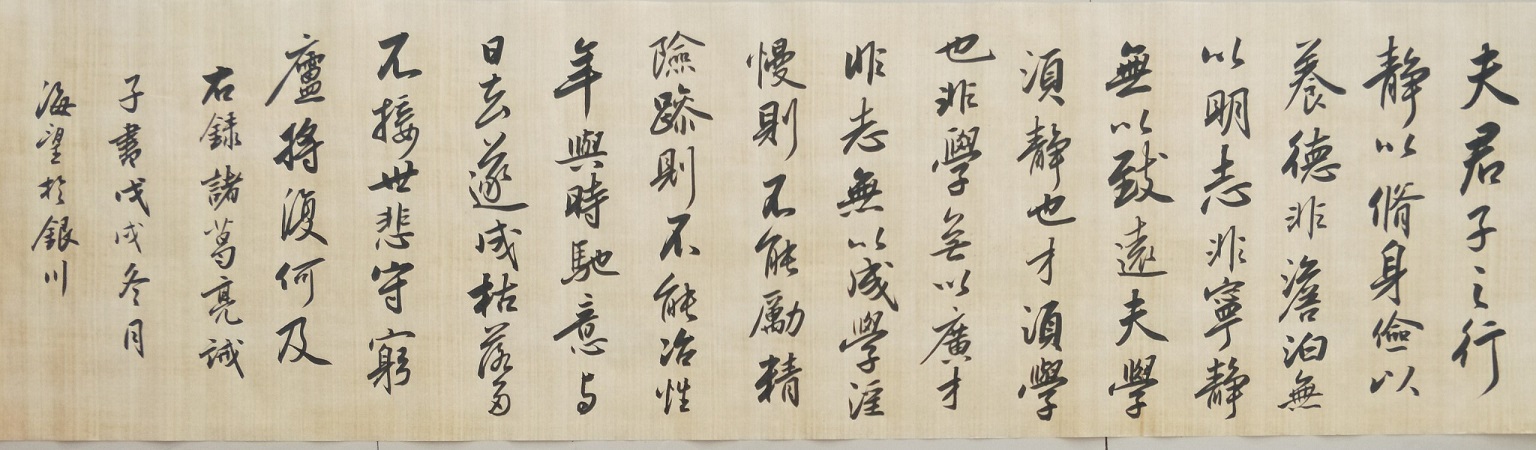 夫君子之行
靜以脩身儉以
養德非澹泊無
以明志非寧靜
無以致遠夫學
須靜也才須學
也非學無以廣才
非志無以成學淫
慢則不能勵精
險躁則不能冶性
年與時馳意与
日去遂成枯落多
不接世悲守窮
廬將復何及
右録諸葛亮誡
子書戊戌冬月
海望於銀川